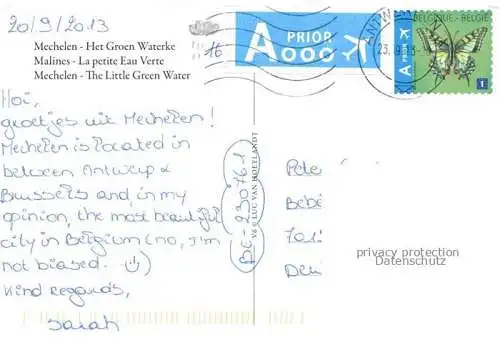 20/9/2013
Mechelen - Het Groen Waterke
Malines - La petite Eau Verte
Mechelen - The Little Green Water
Hoi,
groetjes uit Mechelen!
Mechelen is located in
between Antwerp &
Brussels and, in my
opinion, the most beautiful
city in Belgium (no, I'm
not biased.
Kind regards,
Sarah
BE-230761
V8 © LUC VAN HOETLANDT
A PRIOR
16
ANTWE
23. 9. 13
BELGIQUE - BELGIE
A PRIOR
1
Bebé
privacy protection
Datenschutz